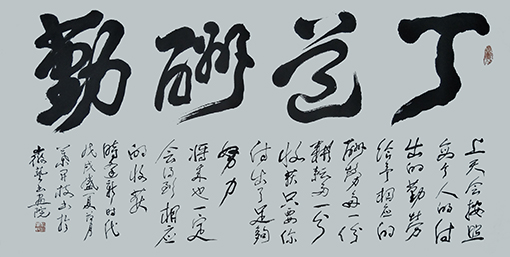 天道酬勤
上天会按照
每个人的付
出的勤劳
给予相应的
酬劳每一份
耕耘每一分
收获只要你
付出了足够
努力
将来也一定
会得到相应
的收获
时逢新时代
戊戌盛夏月
书于
书画院